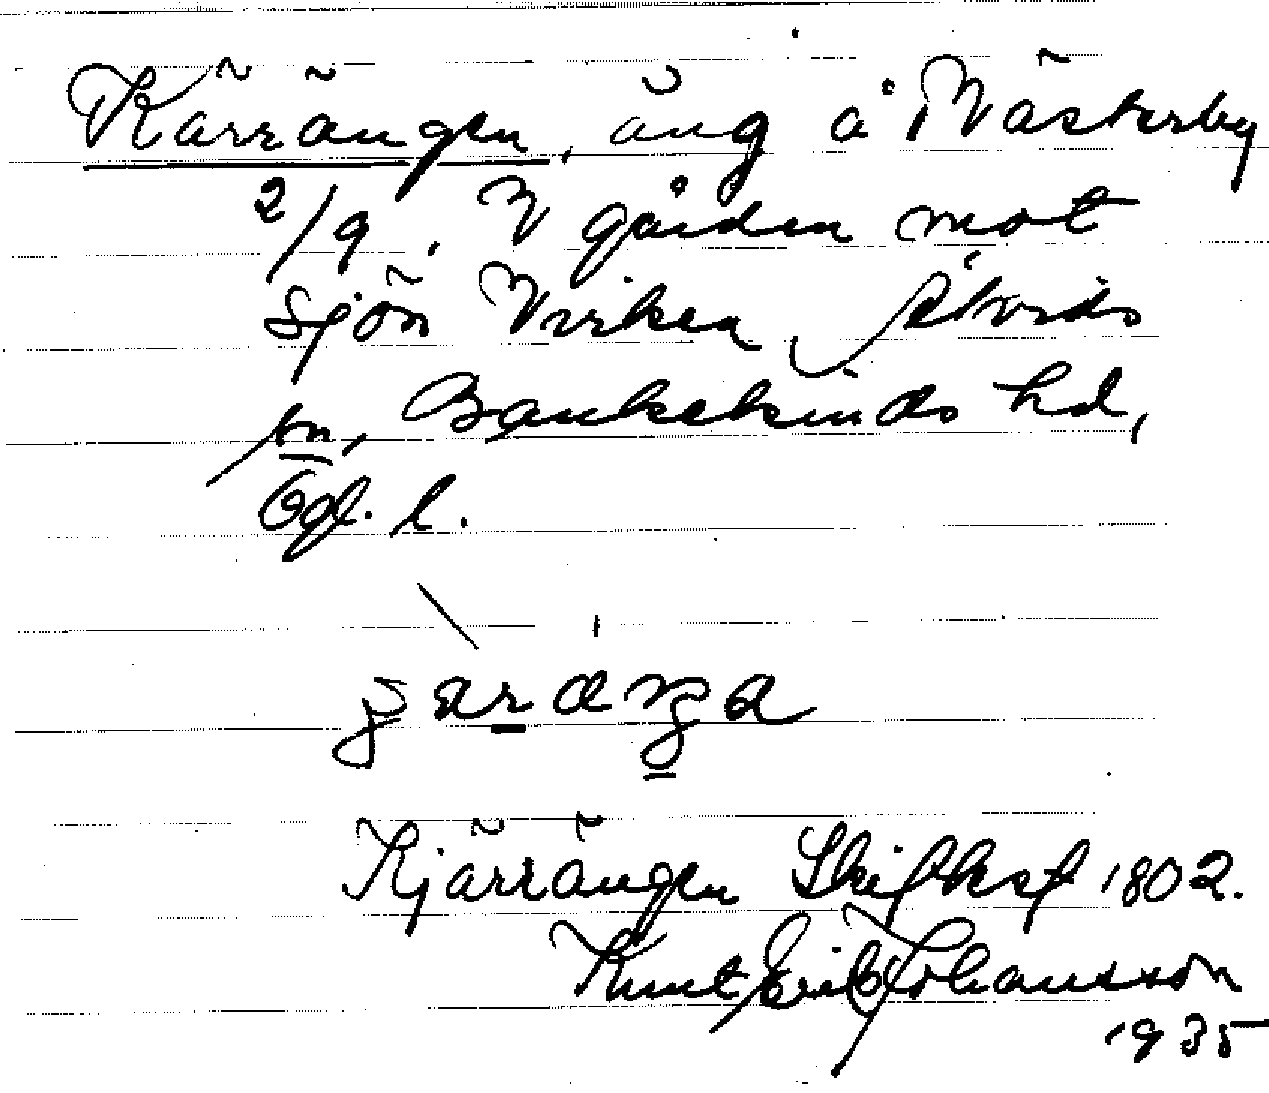 Kärrängen, äng å Västerby
2/9. V gården mot
sjön Virken, Åtvids
sn, Bankekinds hd,
Ögl. l.
Kjärrängen Skifksf 1802.
Knut Erik Johansson
1935